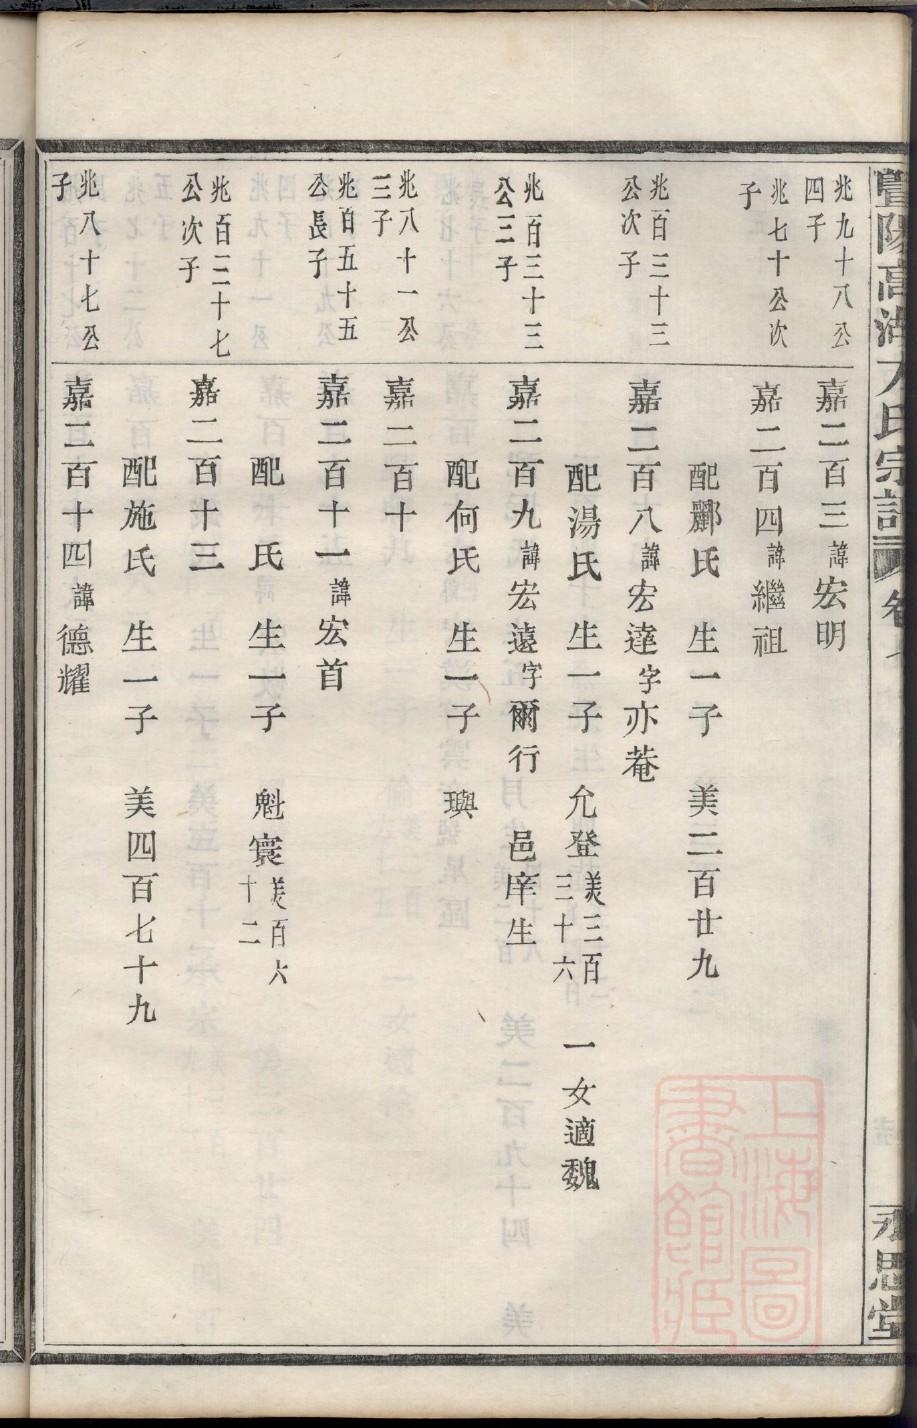 暨陽高湖方氏宗譜 卷七
永思堂
兆九十八公
四子
嘉二百三諱宏明
兆七十公次
子
嘉二百四諱繼祖
配酈氏 生一子 美二百廿九
兆百三十三
公次子
嘉二百八諱宏達字亦菴
配湯氏 生一子 允登美三百三十六 一女適魏
兆百三十三
公三子
嘉二百九諱宏遠字爾行 邑庠生
配何氏 生一子 璵
兆八十一公
三子
嘉二百十
兆百五十五
公長子
嘉二百十一諱宏首
配 氏 生一子 魁寰美百六十二
兆百三十七
公次子
嘉二百十三
配施氏 生一子 美四百七十九
兆八十七公
子
嘉二百十四諱德耀
上海圖
書館藏